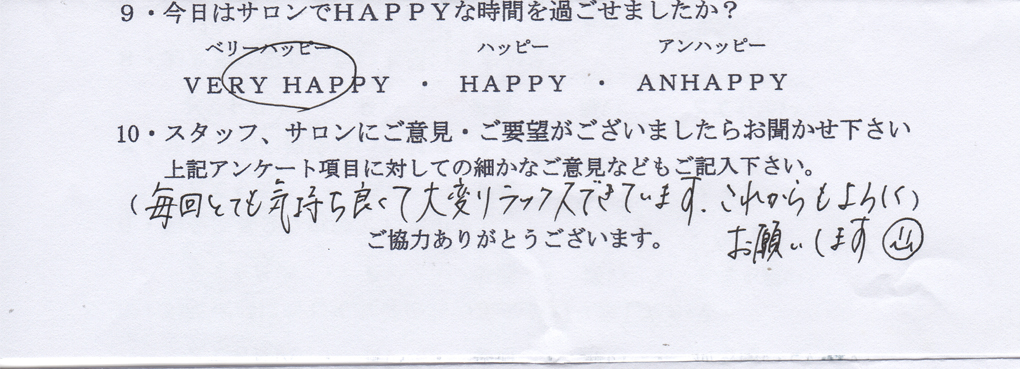 9・今日はサロンでHAPPYな時間を過ごせましたか?
ベリーハッピー ハッピー アンハッピー
VERY HAPPY ・ HAPPY ・ ANHAPPY
10・スタッフ、サロンにご意見・ご要望がございましたらお聞かせ下さい
上記アンケート項目に対しての細かなご意見などもご記入下さい。
(毎回とても気持ち良くて大変リラックスできています。これからもよろしく)
お願いします
ご協力ありがとうございます。